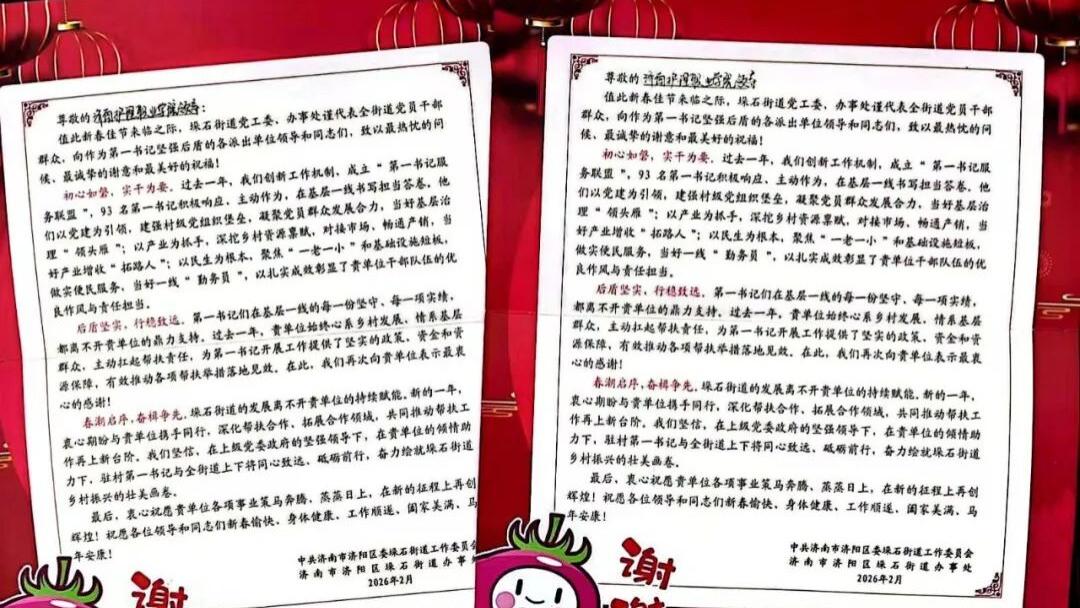 尊敬的济南护理职业学院领导：
值此新春佳节来临之际，垛石街道党工委、办事处谨代表全街道党员干部
群众，向作为第一书记坚强后盾的各派出单位领导和同志们，致以最热忱的问
候、最诚挚的谢意和最美好的祝福！
初心如磐，实干为要。过去一年，我们创新工作机制，成立“第一书记服
务联盟”，93名第一书记积极响应、主动作为，在基层一线书写担当答卷。他
们以党建为引领，建强村级党组织堡垒，凝聚党员群众发展合力，当好基层治
理“领头雁”；以产业为抓手，深挖乡村资源禀赋，对接市场，畅通产销，当
好产业增收“拓路人”；以民生为根本，聚焦“一老一小”和基础设施短板，
做实便民服务，当好一线“勤务员”，以扎实成效彰显了贵单位干部队伍的优
良作风与责任担当。
后盾坚实，行稳致远。第一书记们在基层一线的每一份坚守、每一项实绩，
都离不开贵单位的鼎力支持。过去一年，贵单位始终心系乡村发展、情系基层
群众，主动扛起帮扶责任，为第一书记开展工作提供了坚实的政策、资金和资
源保障，有效推动各项帮扶举措落地见效。在此，我们再次向贵单位表示最衷
心的感谢！
春潮启序，奋楫争先。垛石街道的发展离不开贵单位的持续赋能。新的一年，
衷心期盼与贵单位携手同行，深化帮扶合作、拓展合作领域，共同推动帮扶工
作再上新台阶。我们坚信，在上级党委政府的坚强领导下，在贵单位的倾情助
力下，驻村第一书记与全街道上下将同心致远、砥砺前行，奋力绘就垛石街道
乡村振兴的壮美画卷。
最后，衷心祝愿贵单位各项事业策马奔腾、蒸蒸日上，在新的征程上再创
辉煌！祝愿各位领导和同志们新春愉快、身体健康、工作顺遂、阖家美满、马
年安康！
中共济南市济阳区委垛石街道工作委员会
济南市济阳区垛石街道办事处
2026年2月
谢
尊敬的济南护理职业学院领导
值此新春佳节来临之际，垛石街道党工委、办事处谨代表全街道党员干部
群众，向作为第一书记坚强后盾的各派出单位领导和同志们，致以最热忱的问
候、最诚挚的谢意和最美好的祝福！
初心如磐，实干为要。过去一年，我们创新工作机制，成立“第一书记服
务联盟”，93名第一书记积极响应、主动作为，在基层一线书写担当答卷。他
们以党建为引领，建强村级党组织堡垒，凝聚党员群众发展合力，当好基层治
理“领头雁”；以产业为抓手，深挖乡村资源禀赋，对接市场，畅通产销，当
好产业增收“拓路人”；以民生为根本，聚焦“一老一小”和基础设施短板，
做实便民服务，当好一线“勤务员”，以扎实成效彰显了贵单位干部队伍的优
良作风与责任担当。
后盾坚实，行稳致远。第一书记们在基层一线的每一份坚守、每一项实绩，
都离不开贵单位的鼎力支持。过去一年，贵单位始终心系乡村发展、情系基层
群众，主动扛起帮扶责任，为第一书记开展工作提供了坚实的政策、资金和资
源保障，有效推动各项帮扶举措落地见效。在此，我们再次向贵单位表示最衷
心的感谢！
春潮启序，奋楫争先。垛石街道的发展离不开贵单位的持续赋能。新的一年，
衷心期盼与贵单位携手同行，深化帮扶合作、拓展合作领域，共同推动帮扶工
作再上新台阶。我们坚信，在上级党委政府的坚强领导下，在贵单位的倾情助
力下，驻村第一书记与全街道上下将同心致远、砥砺前行，奋力绘就垛石街道
乡村振兴的壮美画卷。
最后，衷心祝愿贵单位各项事业策马奔腾、蒸蒸日上，在新的征程上再创
辉煌！祝愿各位领导和同志们新春愉快、身体健康、工作顺遂、阖家美满、马
年安康！
中共济南市济阳区委垛石街道工作委员会
济南市济阳区垛石街道办事处
2026年2月
谢